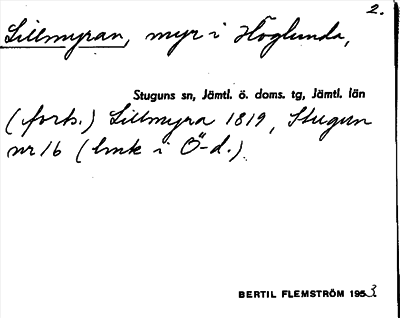 2.
Lillmyran, myr i Höglunda,
Stuguns sn, Jämtl. ö. doms. tg, Jämtl. län
(forts.) Lillmyra 1819, Stugun
nr 16 (lmk i Ö-d.).
BERTIL FLEMSTRÖM 1953